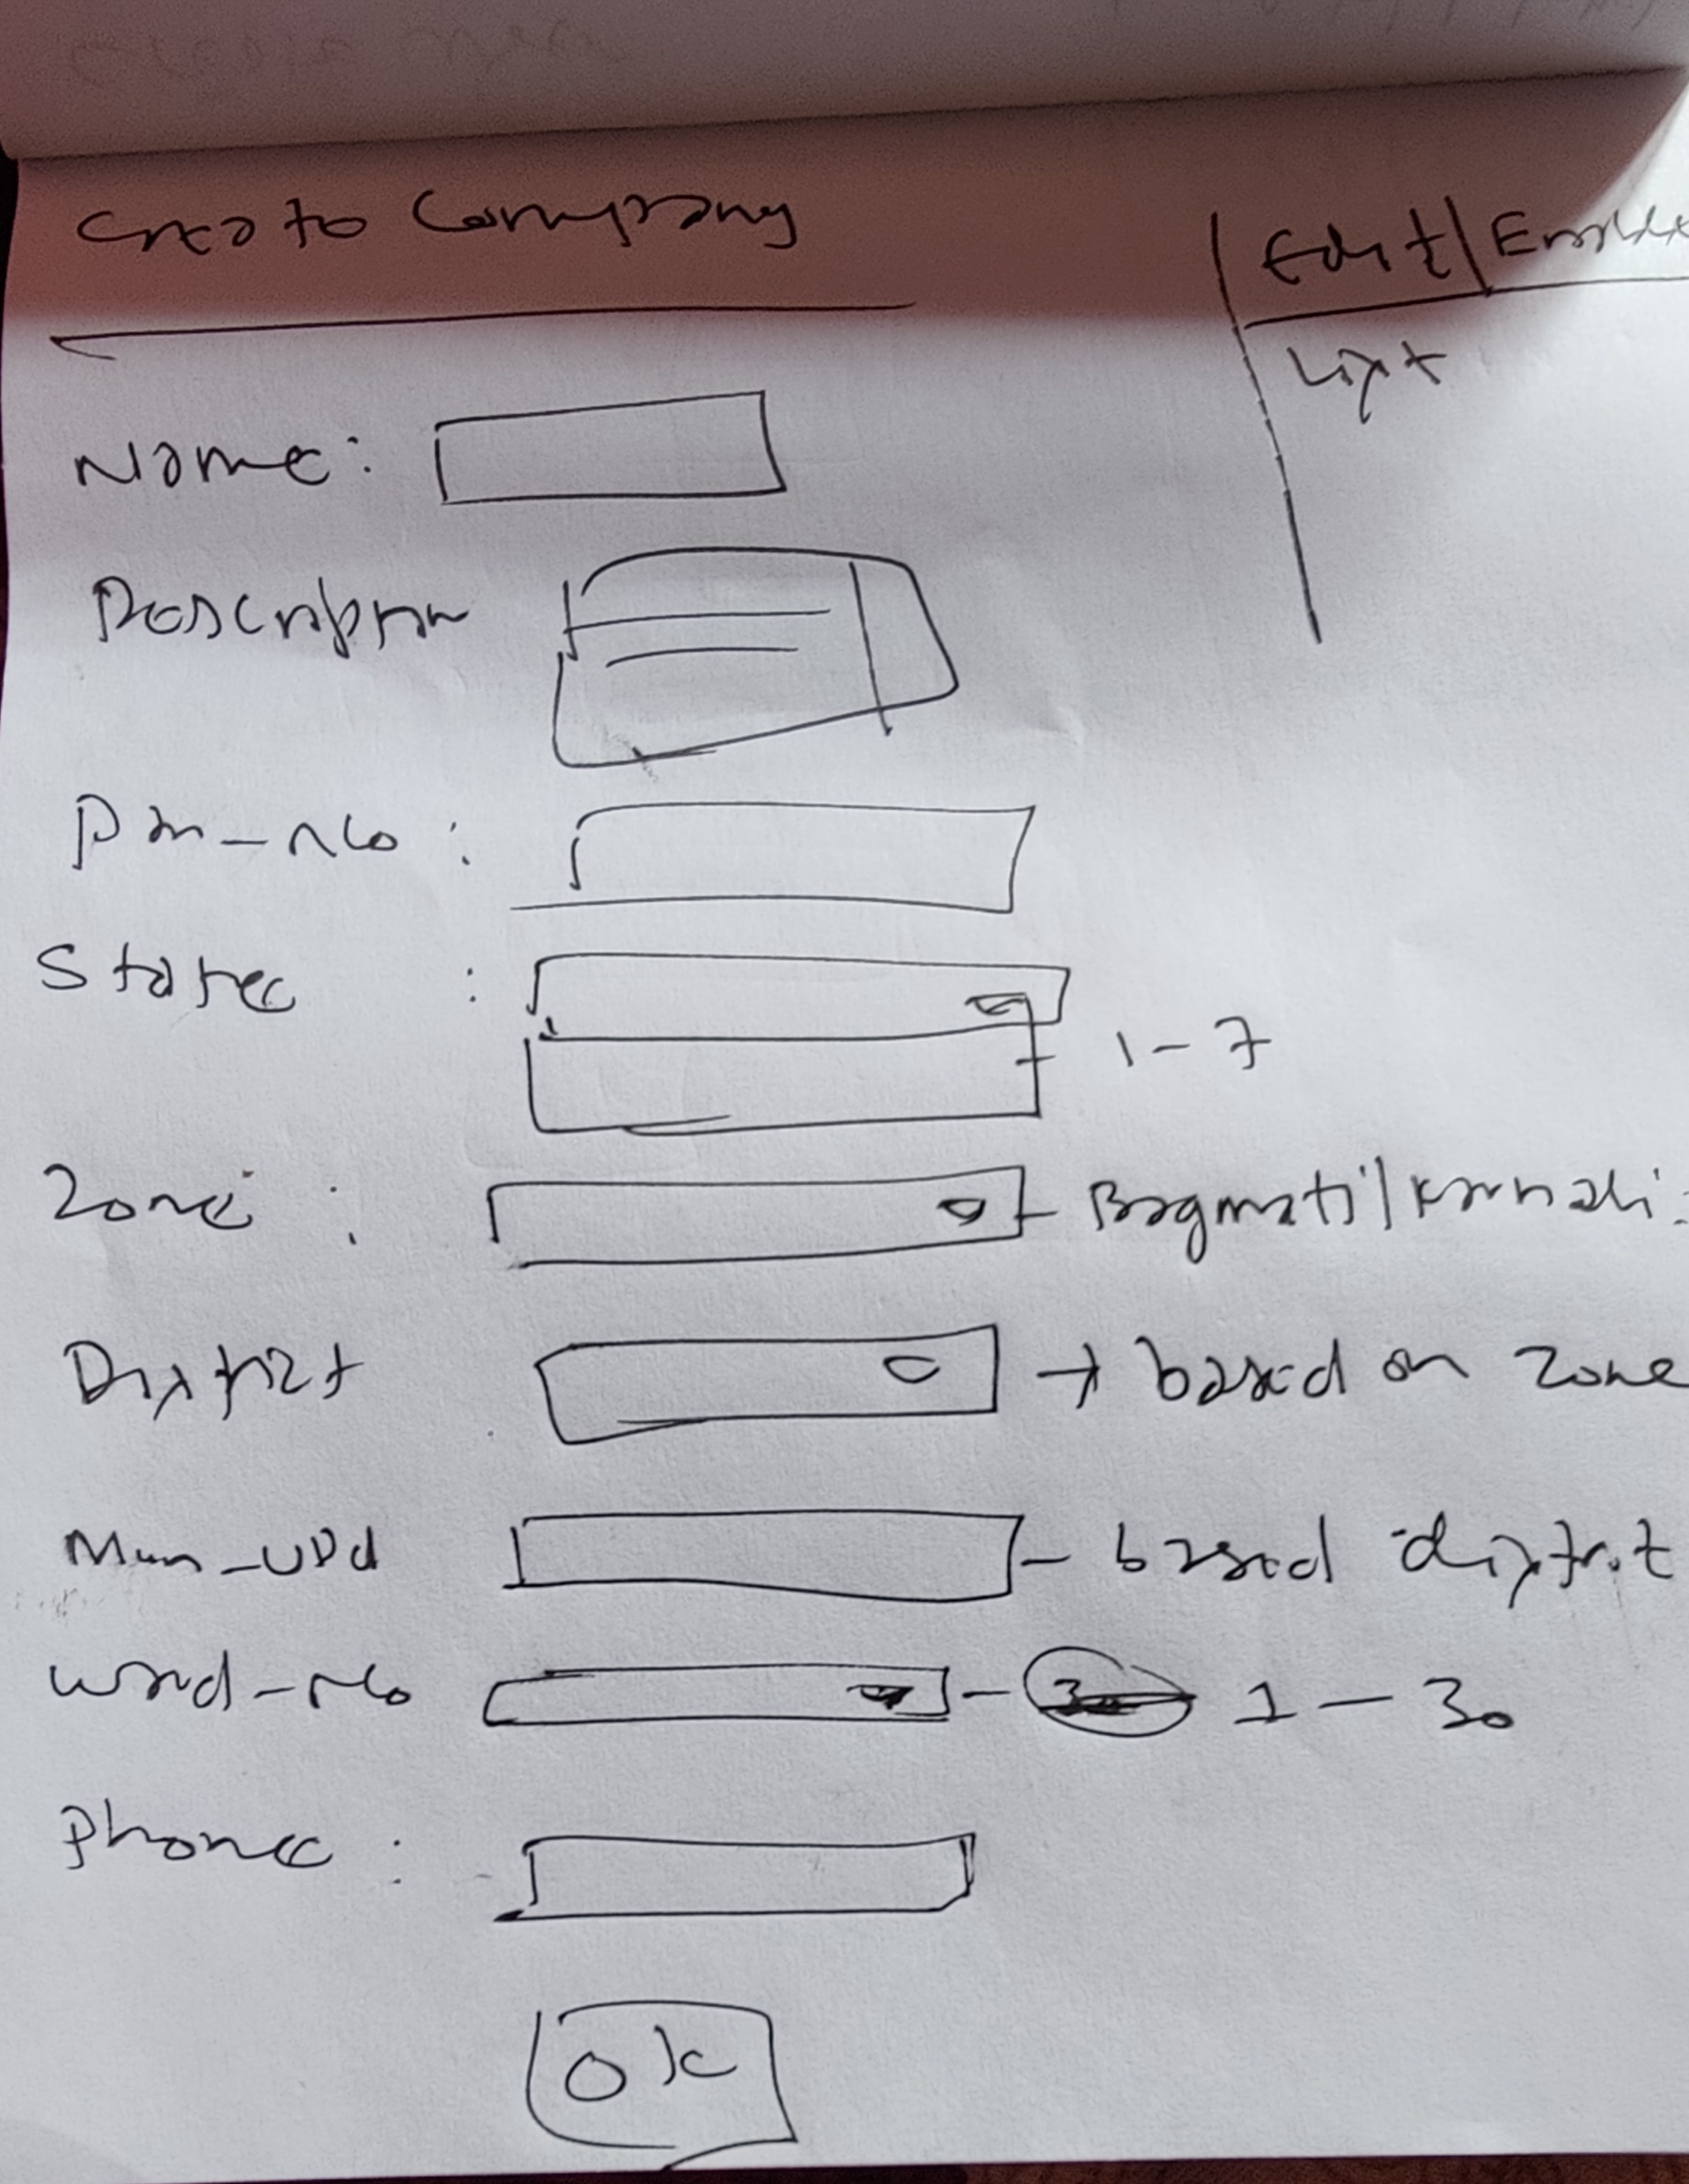 Create Company
Edit/Enable
List
Name:
Description
Pan-No:
State: 1-7
Zone: - Bagmati/Karnali:
District → based on zone
Mun_VDC - based district
Ward-No - 1-30
Phone:
Ok